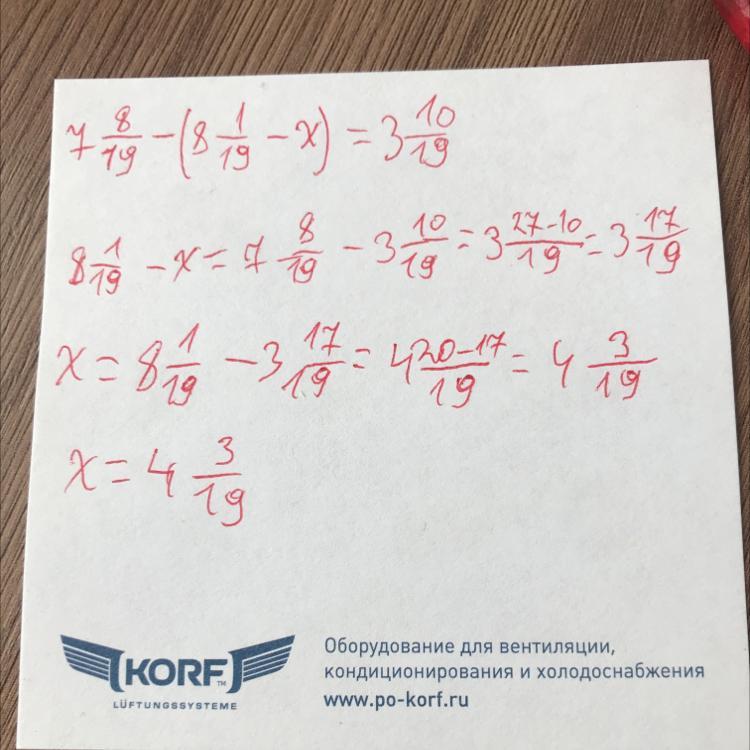 7 8/19 - (8 1/19 - x) = 3 10/19
8 1/19 - x = 7 8/19 - 3 10/19 = 3 27-10/19 = 3 17/19
x = 8 1/19 - 3 17/19 = 4 20-17/19 = 4 3/19
x = 4 3/19
KORF™
LÜFTUNGSSYSTEME
Оборудование для вентиляции,
кондиционирования и холодоснабжения
www.po-korf.ru